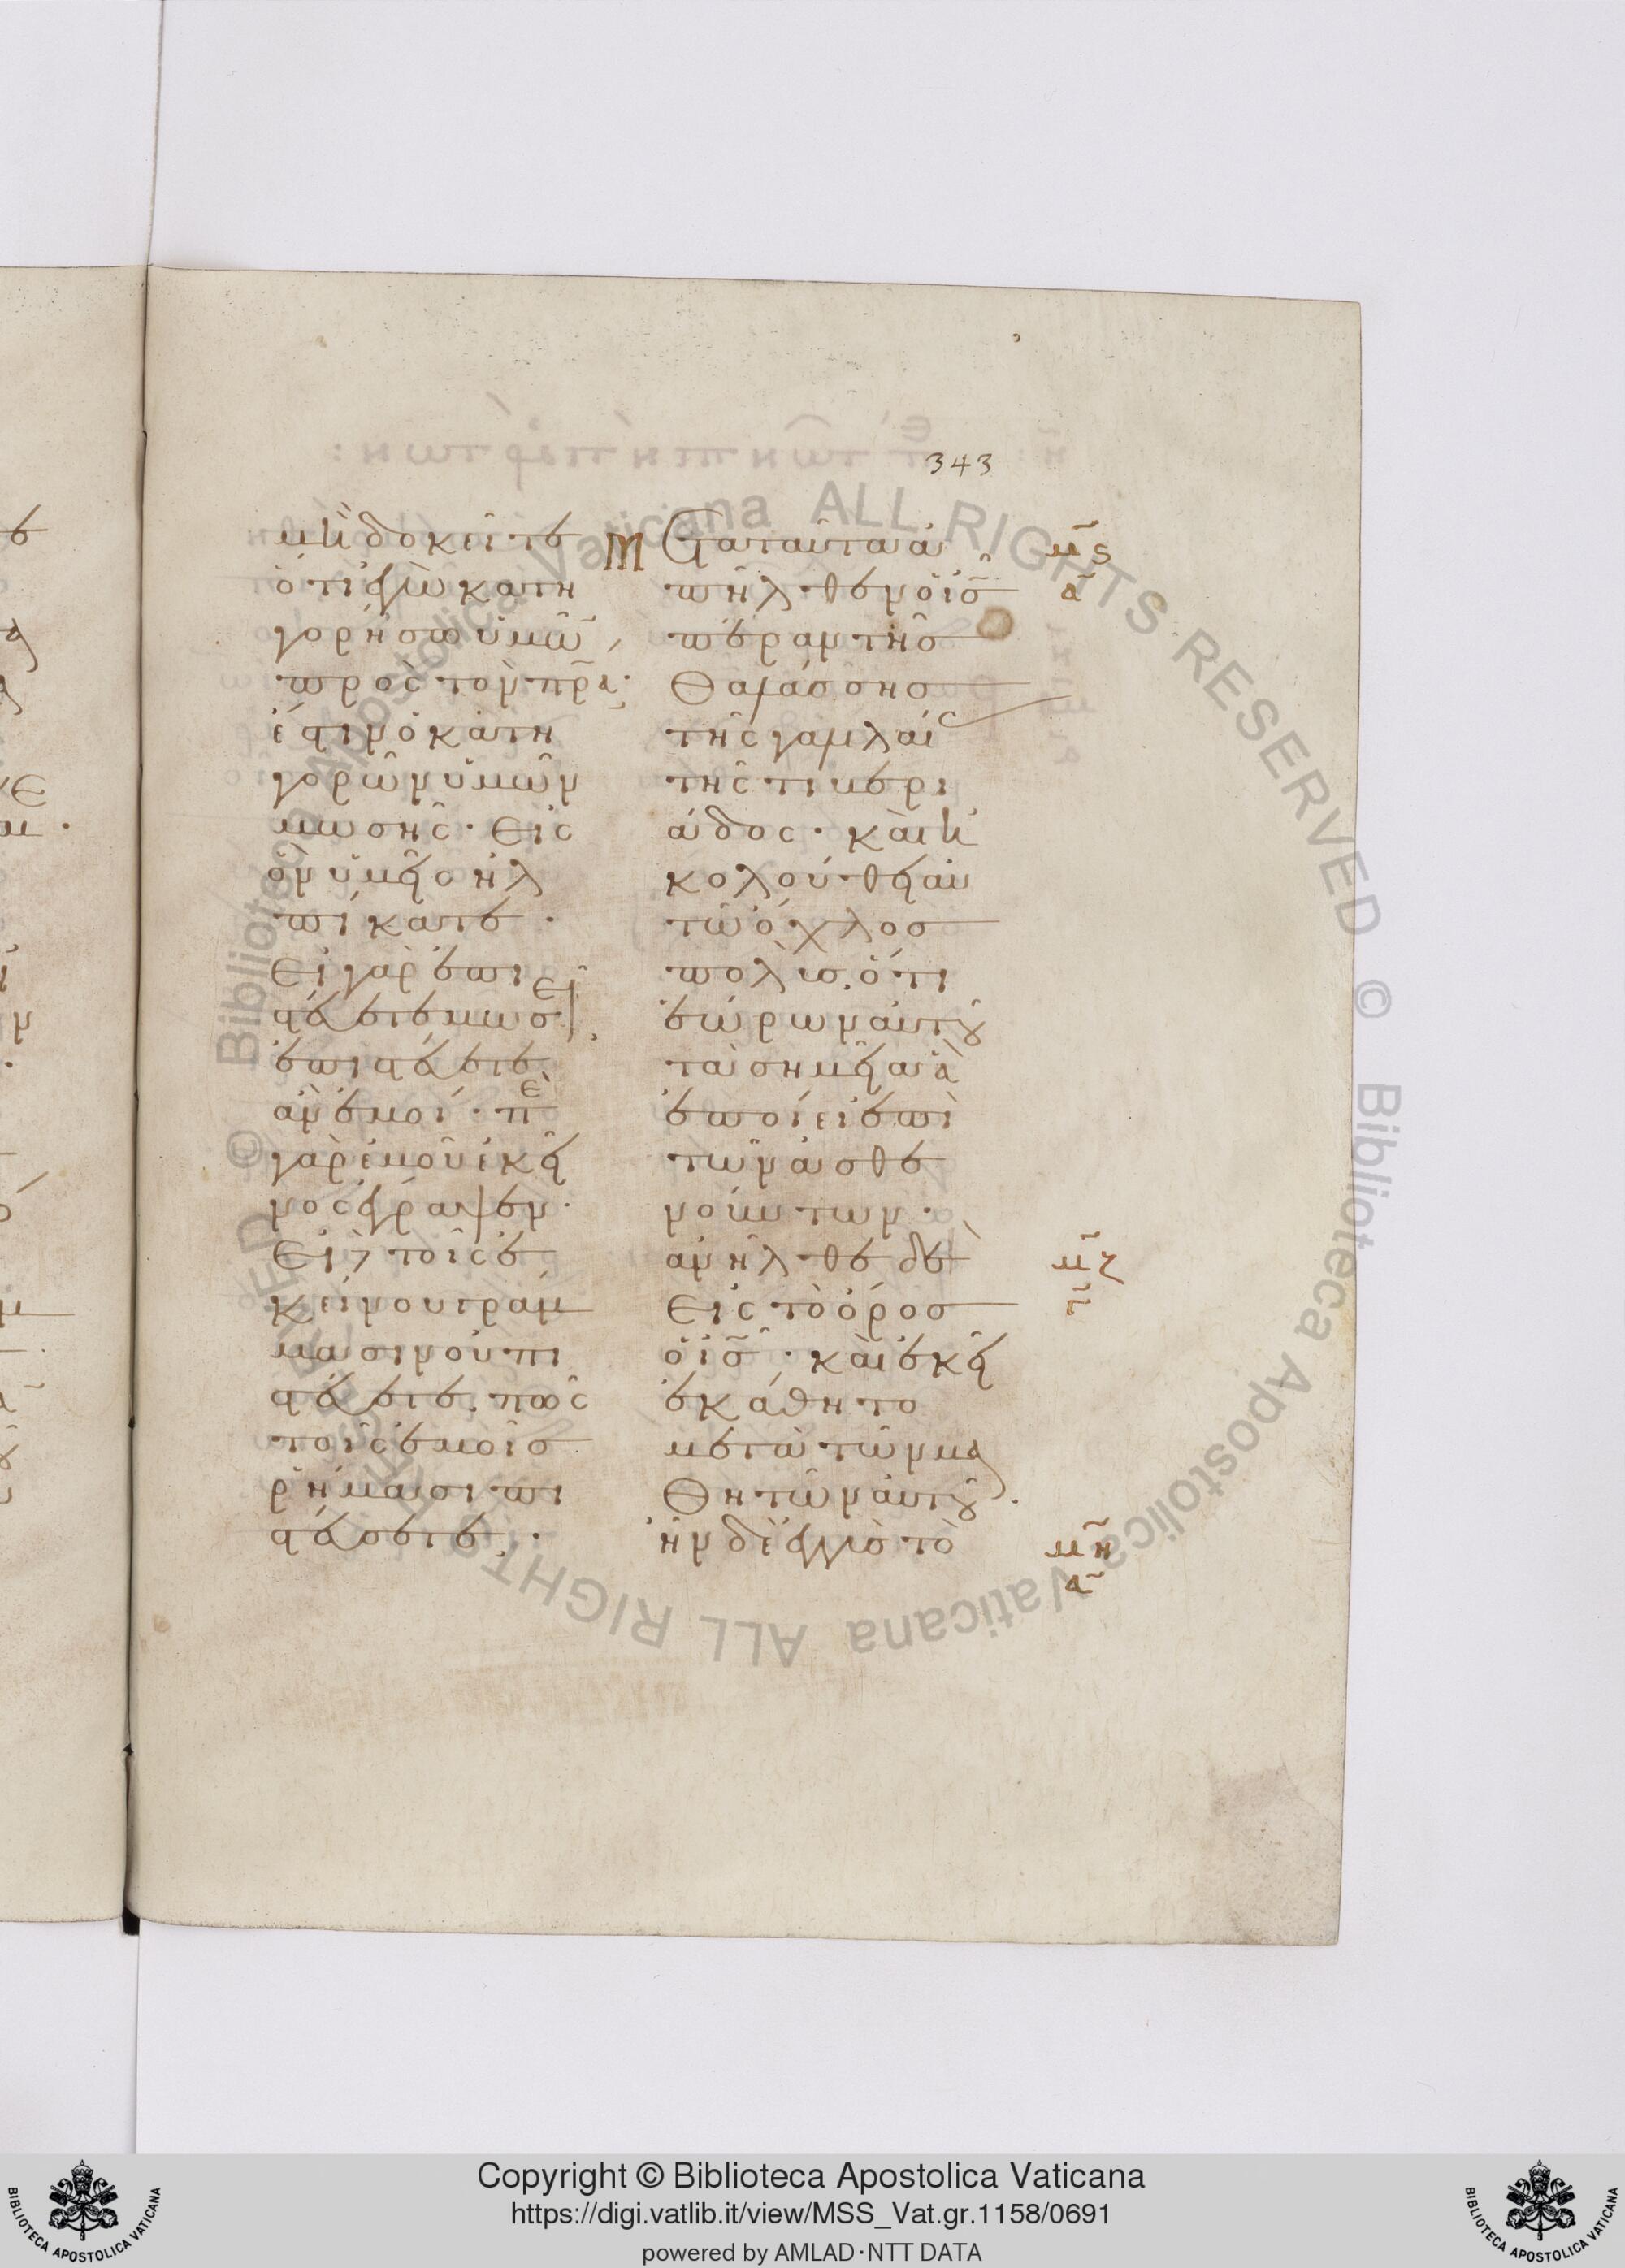 343
μὴ δοκεῖτε
ὅτι ἐγὼ κατη
γορήσω ὑμῶ̅
πρὸς τὸν πρ̅α·
ἔστιν ὁ κατη
γορῶν ὑμῶν
μωσῆς· εἰς
ὃν ὑμεῖς ἠλ
πίκατε·
εἰ γὰρ ἐπι
στεύετε μωσεῖ,
ἐπιστεύετε
ἂν ἐμοί· πε
γὰρ ἐμοῦ ἐκεῖ
νος ἔγραψεν·
εἰ δὲ τοῖς ἐ
κείνου γράμ
μασιν οὐ πι
στεύετε, πῶς
τοῖς ἐμοῖς
ῥήμασι πι
στεύσετε;·
Μετὰ ταῦτα ἀ
πῆλθεν ὁ ἰς̅
πέραν τῆς
θαλάσσης
τῆς γαλιλαί
τῆς τιβερι
άδος· καὶ ἠ
κολούθει αὐ
τῶ ὄχλος
πολὺς, ὅτι
ἑώρων αὐτοῦ
τὰ σημεῖα ἃ
ἐποίει ἐπὶ
τῶν ἀσθε
νούντων·
ἀνῆλθε δὲ
εἰς τὸ ὄρος
ὁ ἰς̅· καὶ ἐκεῖ
ἐκάθητο
μετὰ τῶν μα
θητῶν αὐτοῦ·
ἦν δὲ ἐγγὺς τὸ
μς̅
α̅
μζ̅
ι̅
μη̅
α̅
Copyright © Biblioteca Apostolica Vaticana
https://digi.vatlib.it/view/MSS_Vat.gr.1158/0691
powered by AMLAD·NTT DATA
BIBLIOTECA APOSTOLICA VATICANA
BIBLIOTECA APOSTOLICA VATICANA
© Biblioteca Apostolica Vaticana ALL RIGHTS RESERVED © Biblioteca Apostolica Vaticana ALL RIGHTS RESERVED